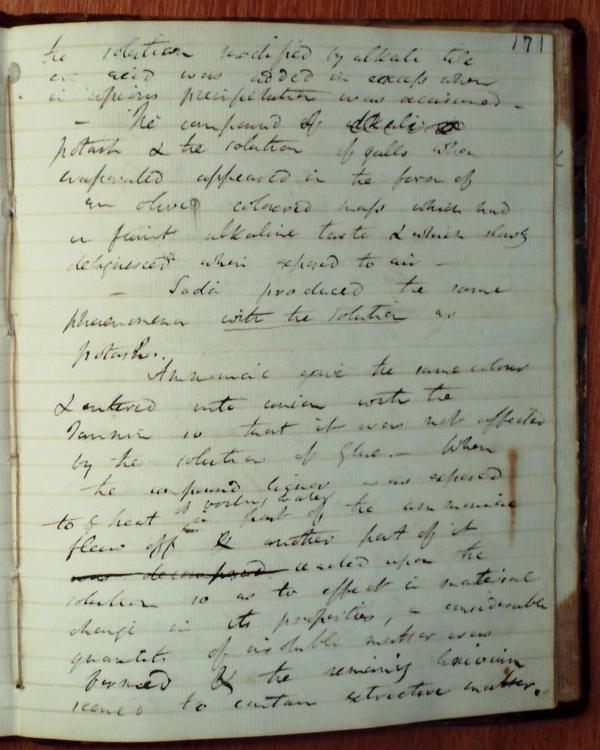 171
the solution modified by alkali till
an acid was added in excess when
a copious precipitation was occasioned -
- The compound of
potash & the solution of galls when
evaporated appeared in the form of
an olive coloured mass which had
a faint alkaline taste & which slowly
deliquesced when exposed to air -
- Soda produced the same
phaenomena with the solution as
potash.
Ammoniac gave the same colour
& entered into union with the
Tannin so that it was not affected
by the solution of Glue. - When
the compound liquor was exposed
of boiling water
to heat part of the ammoniac
flew off & another part of it
was decomposed reacted upon the
solution so as to effect a material
change in its properties, a considerable
quantity of insoluble matter was
formed & the remaining lixivium
seemed to contain extractive matter.